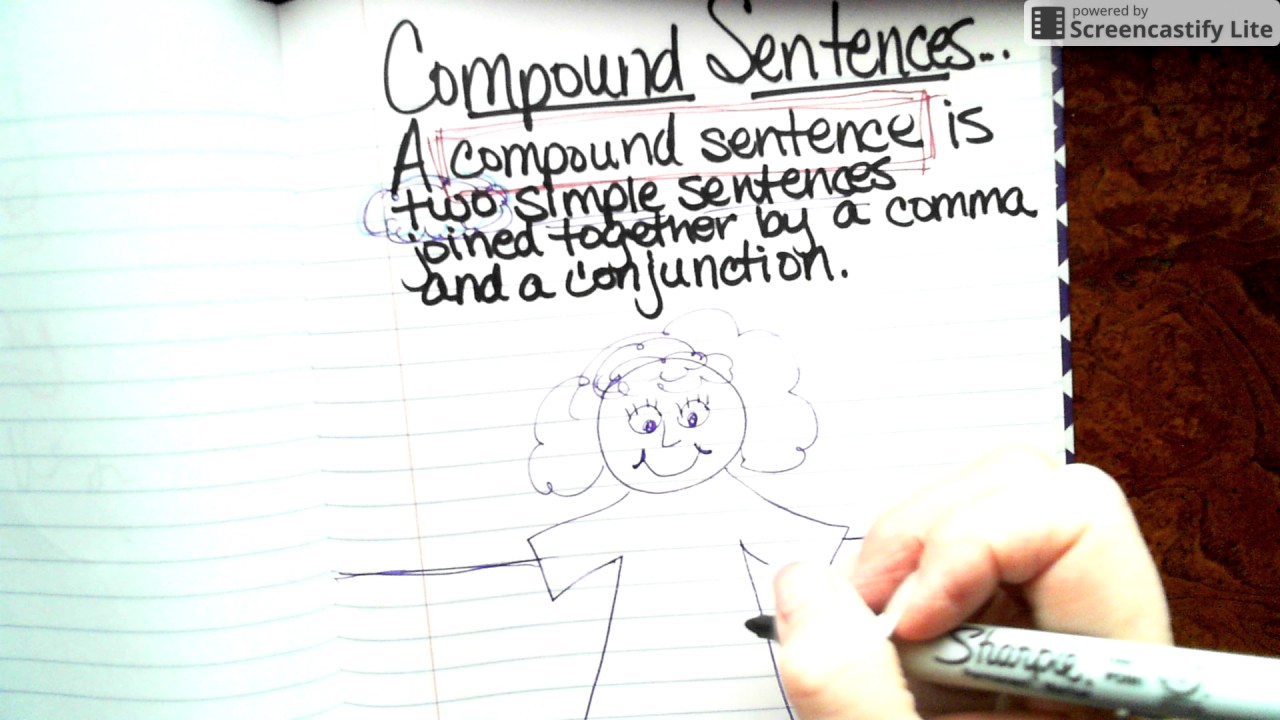 powered by
Screencastify Lite
Compound Sentences...
A compound sentence is
two simple sentences
joined together by a comma
and a conjunction.
Sharpie.